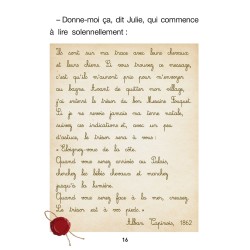 – Donne-moi ça, dit Julie, qui commence
à lire solennellement :
Ils sont sur ma trace avec leurs chevaux
et leurs chiens. Si vous trouvez ce message,
c'est qu'ils m'auront pris pour m'envoyer
au bagne. Avant de quitter mon village,
j'ai enterré le trésor du bon Messire Fouquet.
Si je ne reviens jamais sur ma terre natale,
suivez ces indications et, avec un peu
d'astuce, le trésor sera à vous :
« Éloignez-vous de la côte.
Quand vous serez arrivés au Palais,
cherchez les écuries et marchez
jusqu'à la lumière.
Quand vous serez face à la mer, creusez.
Le trésor est à vos pieds. »
Albin 1862
16